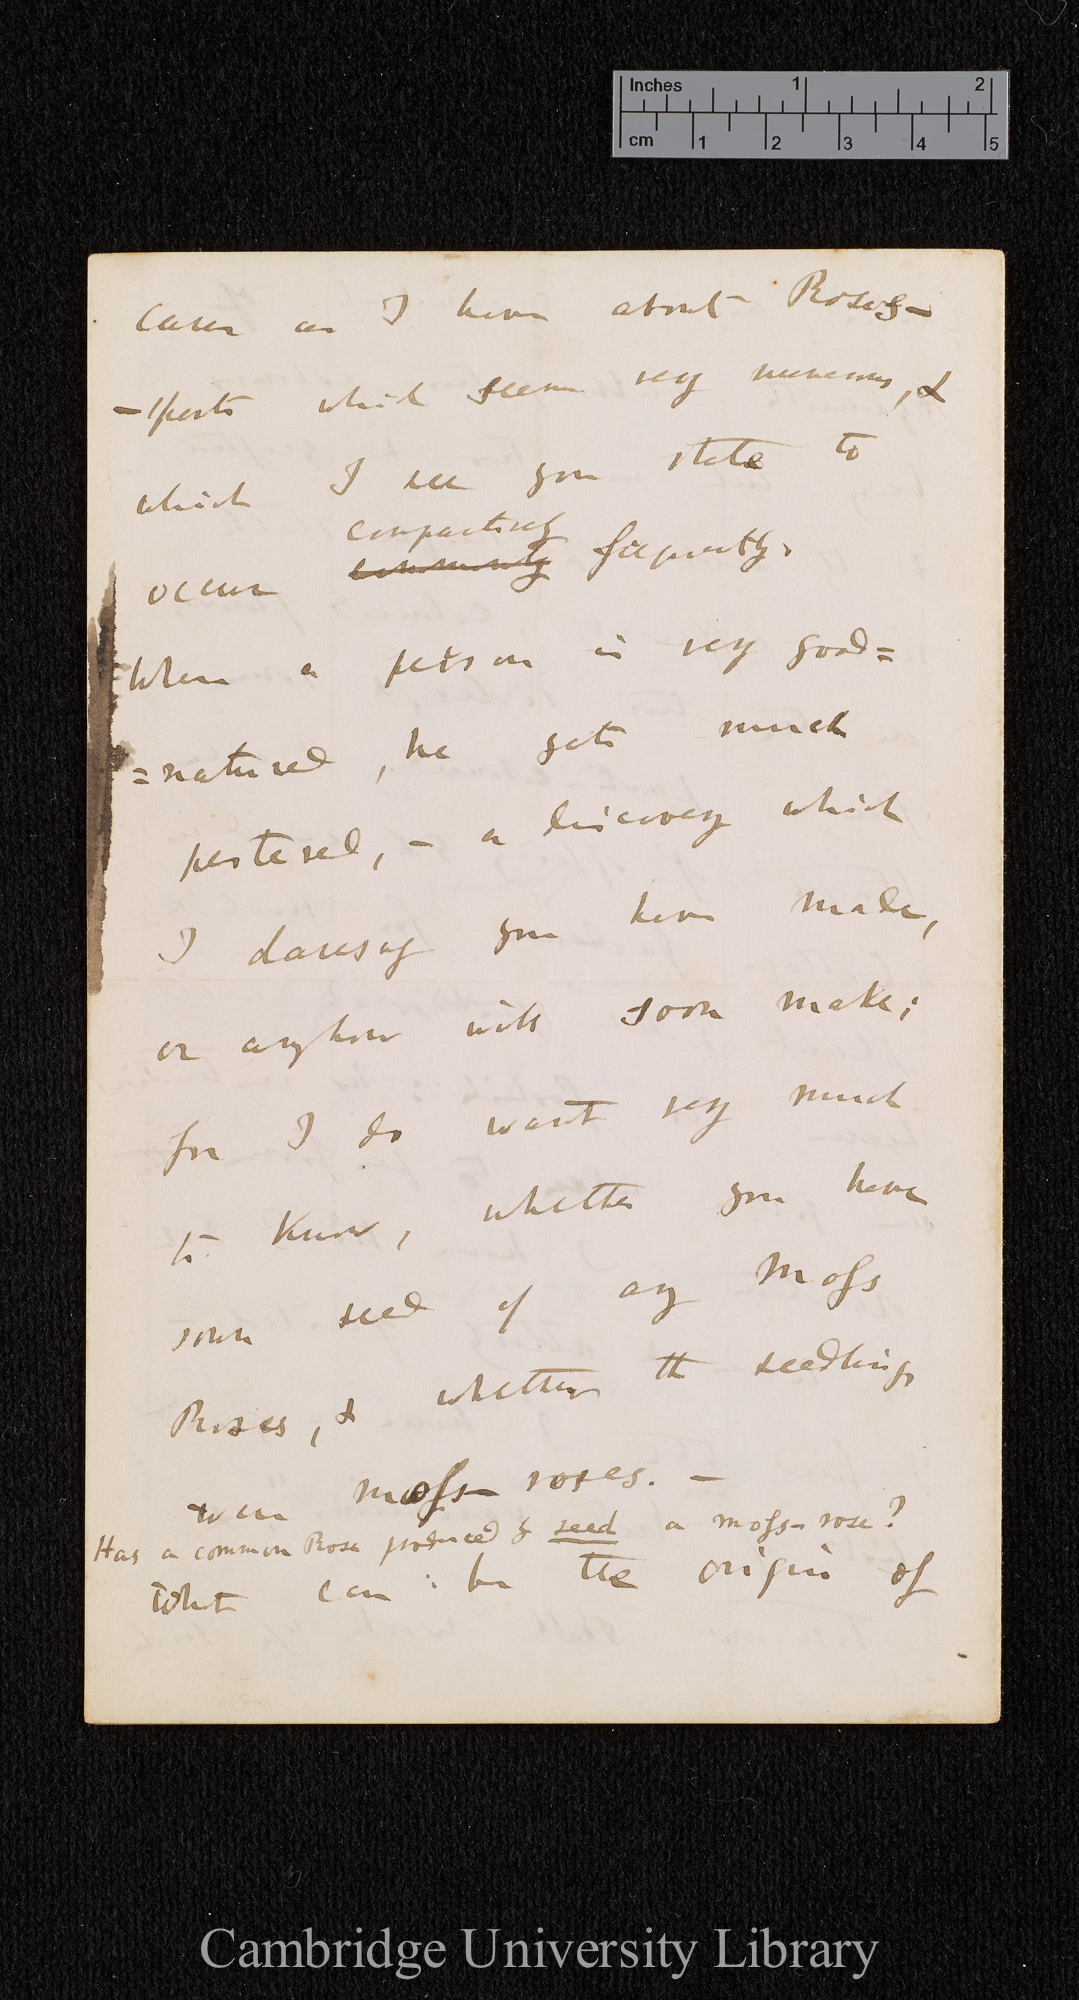 Inches 1 2
cm 1 2 3 4 5
cases as I have about Roses-
-sports which seem very numerous, &
which I see you state to
comparatively
occur commonly frequently.
When a person is very good=
=natured, he gets much
pestered,— a discovery which
I daresay you have made,
or anyhow will soon make;
for I do want very much
to know, whether you have
sown seed of any Moss
Roses, & whether the seedlings
were moss-roses.—
Has a common Rose produced by seed a moss-rose?
What can be the origin of
Cambridge University Library